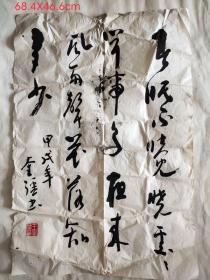 68.4X46.6cm
春眠不觉晓处处
闻啼鸟夜来
風雨聲花落知
多少
甲戌年
書